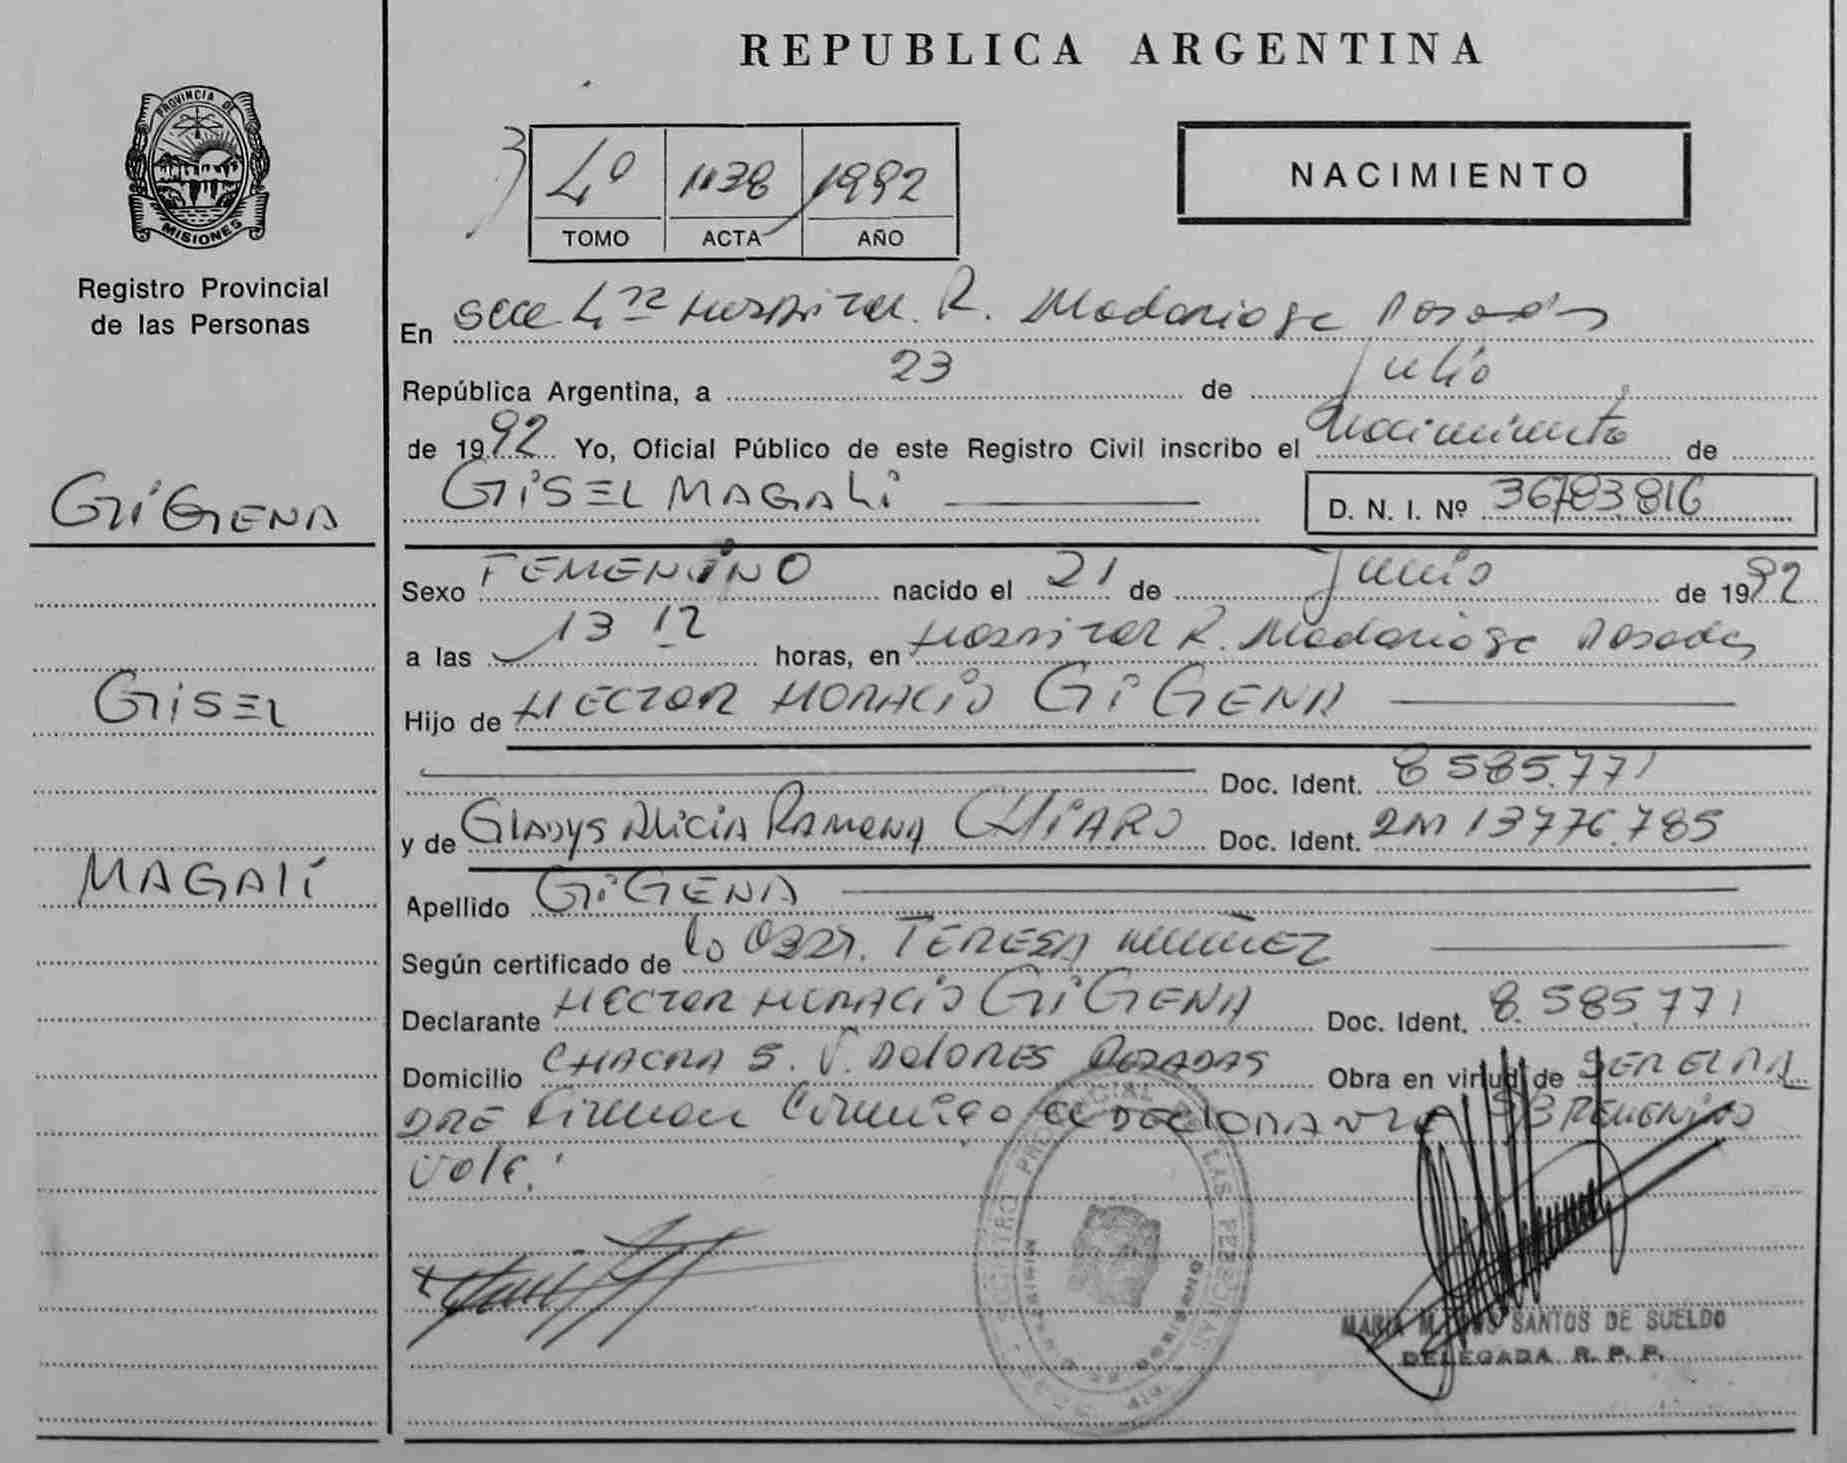 REPUBLICA ARGENTINA
PROVINCIA DE
MISIONES
Registro Provincial
de las Personas
4º 1138 1992
TOMO ACTA AÑO
NACIMIENTO
En Secc 4ta Hospital R. Madariaga Posadas
República Argentina, a 23 de Julio
de 1992 Yo, Oficial Público de este Registro Civil inscribo el Nacimiento de
GISEL MAGALI
D. N. I. Nº 36783816
GIGENA
GISEL
MAGALI
Sexo FEMENINO nacido el 21 de Junio de 1992
a las 13 12 horas, en Hospital R. Madariaga Posadas
Hijo de HECTOR HORACIO GIGENA
Doc. Ident. 8 585.771
y de GLADYS ALICIA RAMONA CHIARO Doc. Ident. 13776.785
Apellido GIGENA
Según certificado de la Obst. TERESA NUÑEZ
Declarante HECTOR HORACIO GIGENA Doc. Ident. 8.585.771
Domicilio CHACRA 5. V. DOLORES POSADAS Obra en virtud de SER EL PA
DRE Firman Conmigo el DECLARANTE S/B FEMENINO
Vale.
REGISTRO PROVINCIAL DE LAS PERSONAS
SANTOS DE SUELDO
DELEGADA R. P. P.